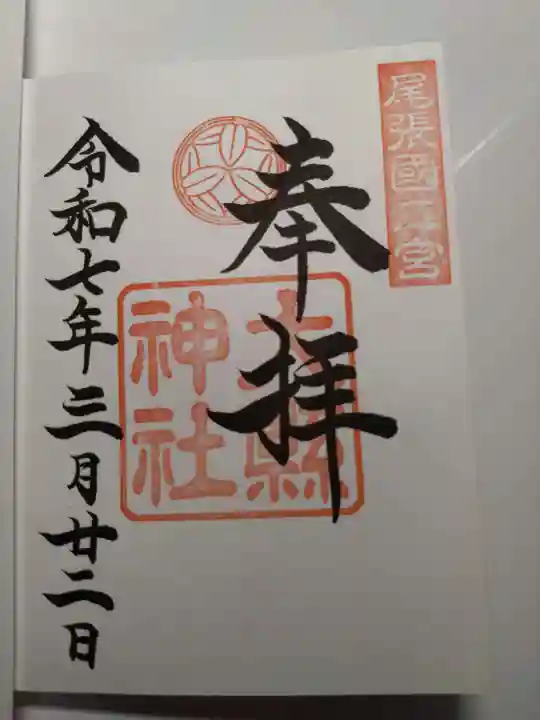 尾張國二宮
奉拝
大縣
神社
令和七年三月廿二日